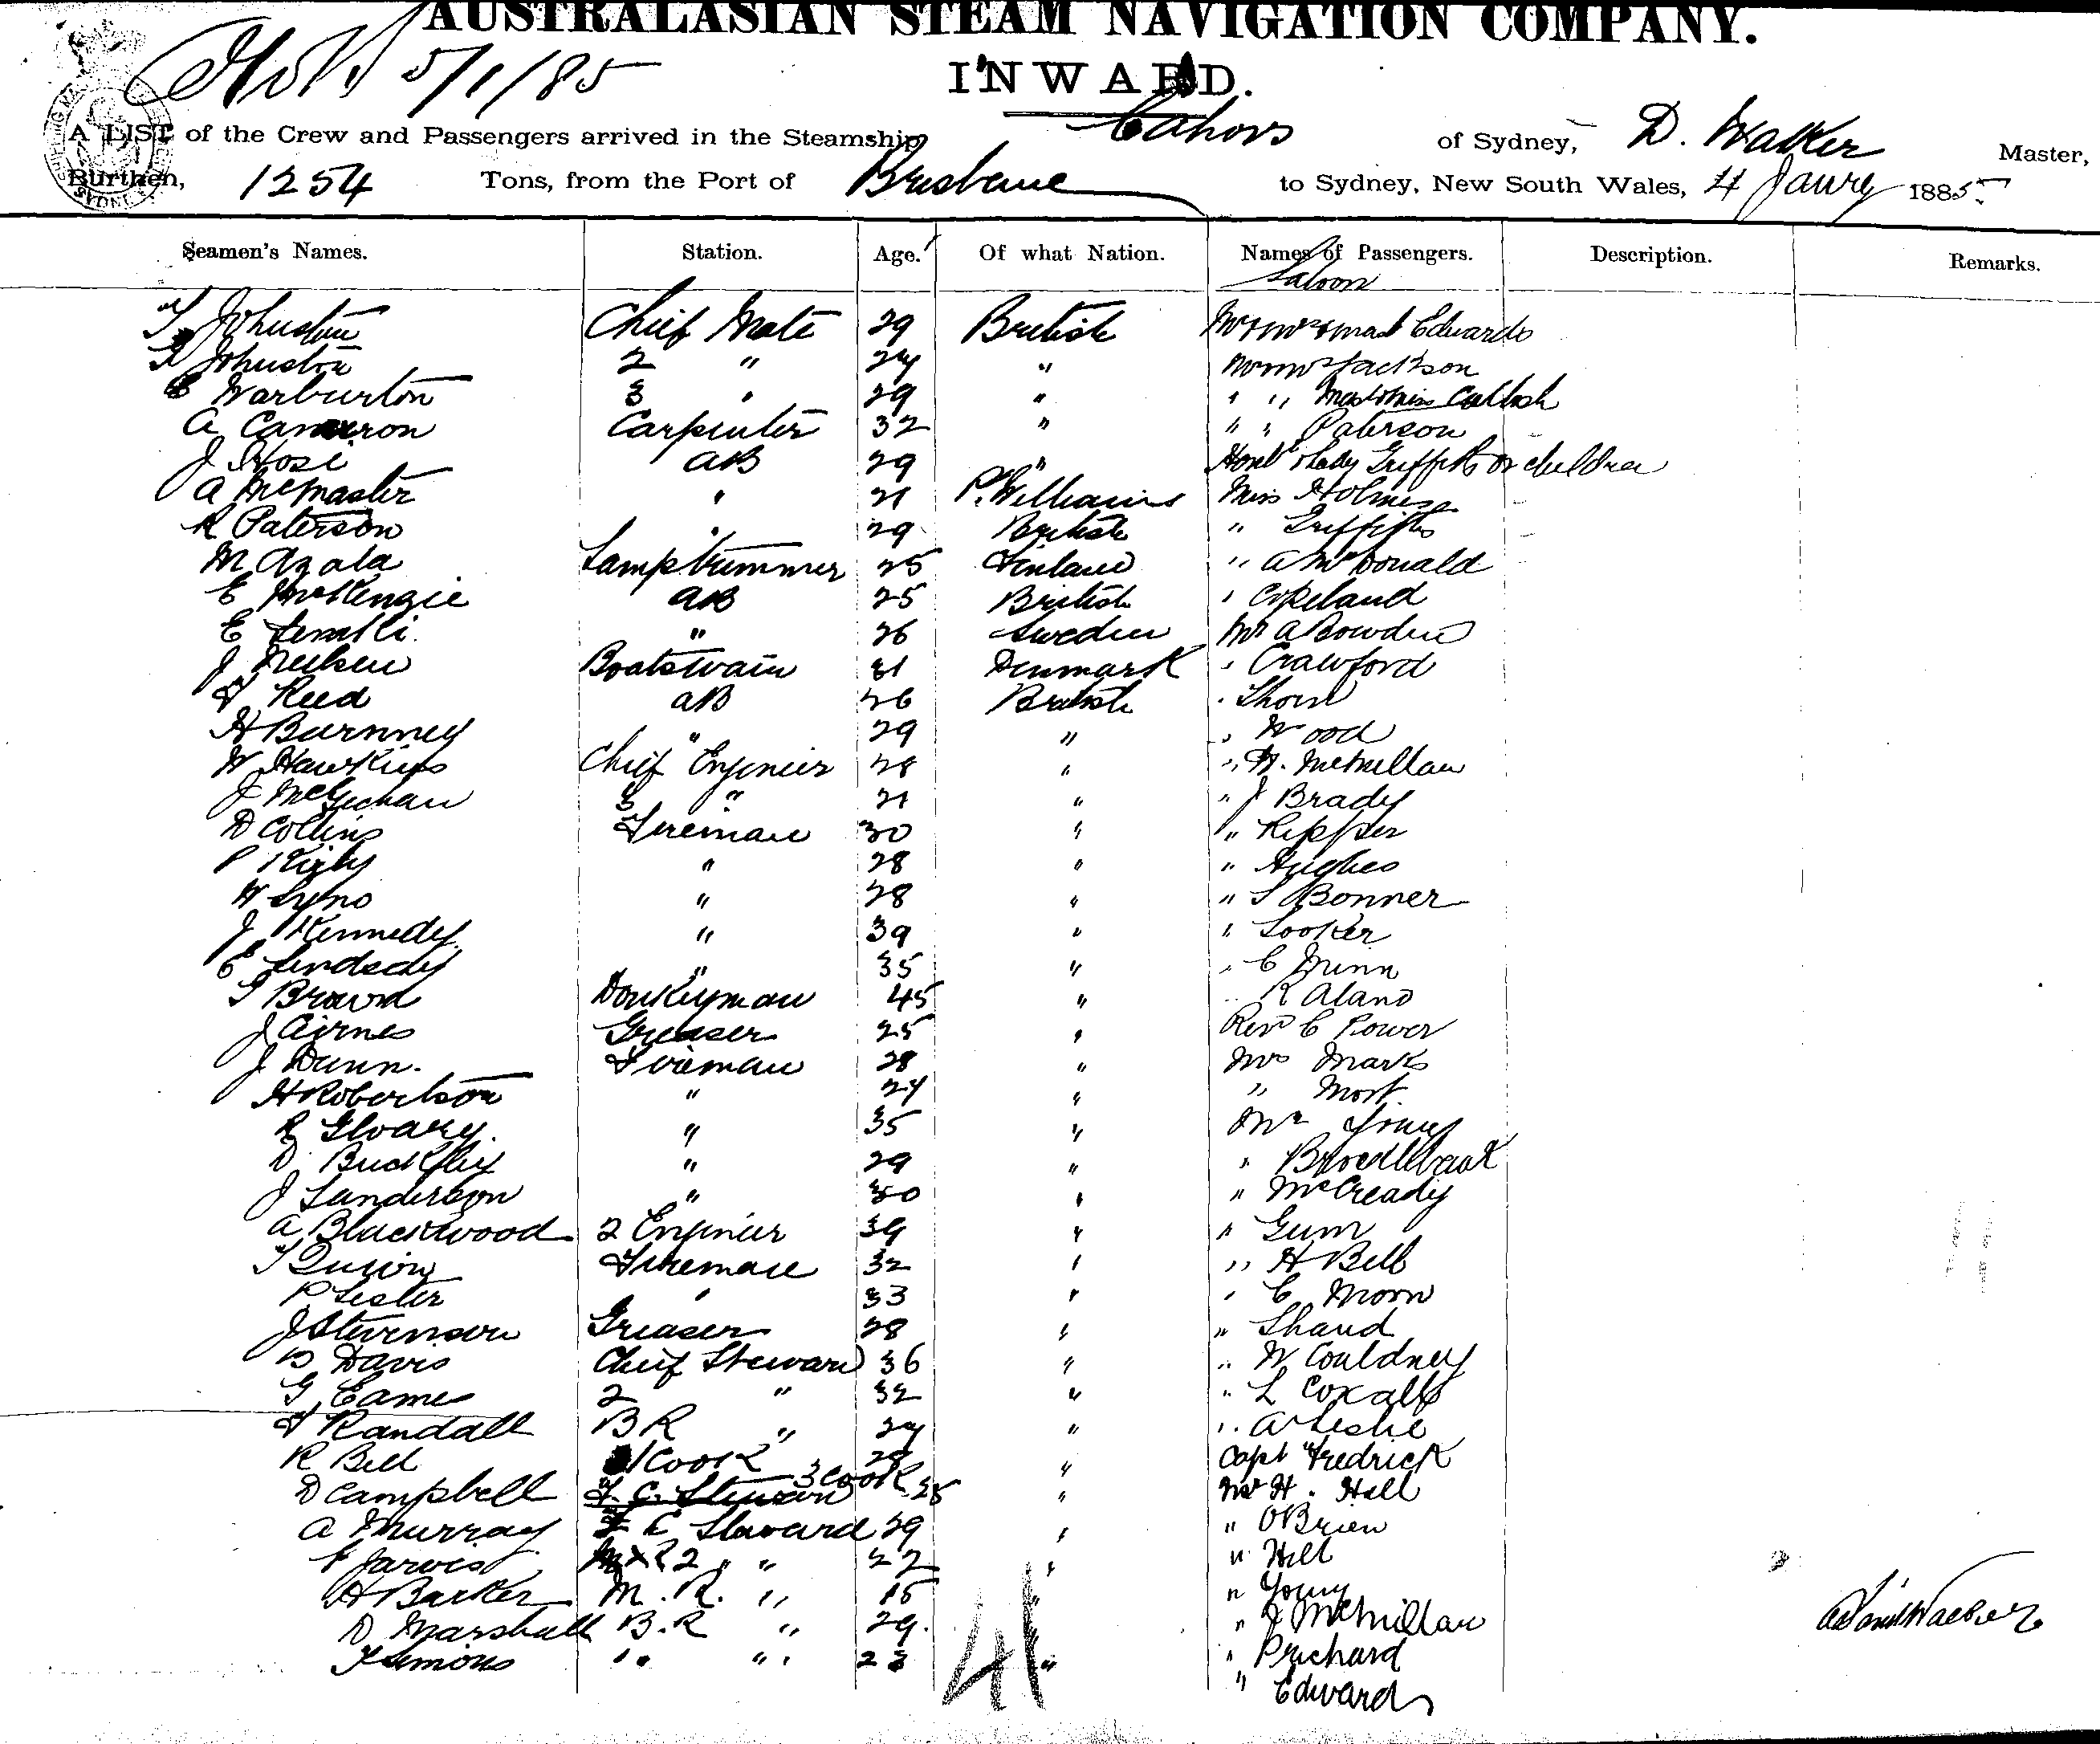 AUSTRALASIAN STEAM NAVIGATION COMPANY.
5/1/85
INWARD.
A LIST of the Crew and Passengers arrived in the Steamship Cahors of Sydney, D. Walker Master,
Burthen, 1254 Tons, from the Port of Brisbane to Sydney, New South Wales, 4 Jany 1885
Seamen's Names. Station. Age. Of what Nation. Names of Passengers. Description. Remarks.
Saloon
T Johnston Chief Mate 29 British Edwards
Johnston 2 " 24 " Jackson
Warburton 3 " 29 "
A Cameron Carpenter 32 " " " Paterson
J Hosie AB 29 " Honl & Lady Griffith children
A McMaster " 21 P. Williams Miss Holmes
R Paterson " 29 British " Griffith
M Azala Lamptrimmer 25 Finland " A McDonald
E McKenzie AB 25 British " Copeland
E " 26 Sweden Mr A Bowden
J Neilsen Boatswain 31 Denmark " Crawford
Reed AB 26 British " Thorn
H Burnney " 29 " " Wood
W Hawkins Chief Engineer 28 " " McMillan
J McGechan 3 " 21 " " J Brady
D Collins Fireman 30 " "
P " 28 " " Hughes
W Lyno " 28 " " S Bonner
J Kennedy " 39 " " Looker
E Lindsay " 35 " " C Nunn
Brown Donkeyman 45 " " R Aland
J Airnes Greaser 25 " Revd C Power
J Dunn. Fireman 28 " Mrs Marks
H Robertson " 24 " " Mort
R " 35 " Mr Young
D Buckley " 29 " "
J Sanderson " 30 " " McCready
A Blackwood 2 Engineer 39 " " Gum
T Fireman 32 " " H Bell
P Lester " 33 " " C Moon
J Stevenson Greaser 28 " " Shand
Davis Chief Steward 36 " " W Couldney
G Eames 2 " 32 " " L Coxall
Randall B R " 24 " " A Leslie
R Bell 1 Cook 29 " Capt Fredrick
D Campbell F. C. Steward 3 Cook 25 " Mr H. Hall
A Murray F C Steward 29 " " OBrien
Jarvis 2 " 22 " " Hill
H Barker M. R. " 15 " Young
D Marshall B.R " 29. " J McMillan
Simons " " 23 " " Prichard
41 " Edwards